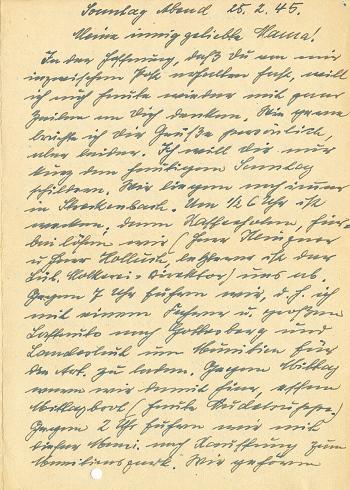 Sonntag Abend 25.2.45.
Meine innig geliebte Mama!
In der Hoffnung, daß Du von mir
inzwischen Post erhalten hast, will
ich mich heute wieder mit paar
Zeilen an Dich denken. Wie gerne
brächte ich Dir Grüße persönlich,
aber leider. Ich will Dir nur
kurz den heutigen Sonntag
schildern. Wir liegen noch immer
in Um ½ 6 Uhr ist
wecken, dann Kaffeeholen, hier-
bei lösen wir (Herr
u Herr letzterer ist der
Direktor) uns ab.
Gegen 7 Uhr fuhren wir, d.h. ich
mit einem Fahrer u. großen
Lastauto nach Gottesberg und
Landeshut um Munition für
die Art. zu laden. Gegen Mittag
waren wir damit hier, essen
Mittagbrot (heute
Gegen 2 Uhr fuhren wir mit
dieser Muni. nach zum
Munitionspark. Wir gehören